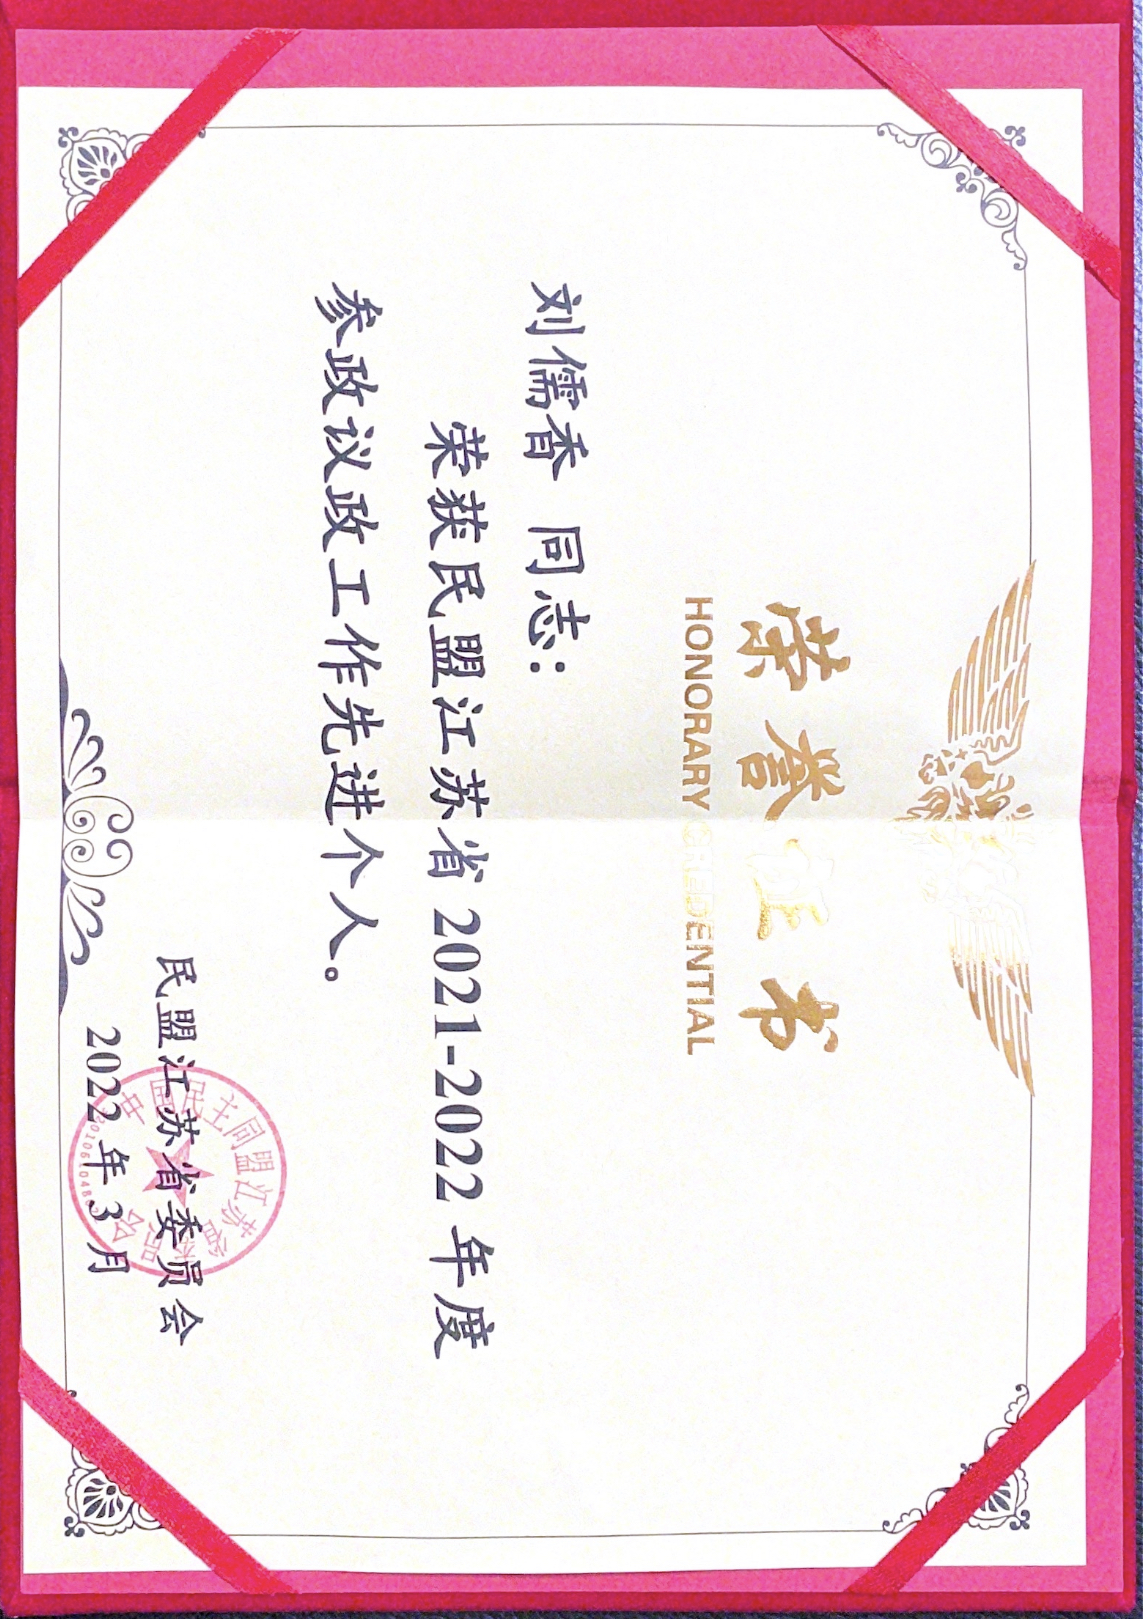 荣誉证书
HONORARY CREDENTIAL
刘儒香 同志:
荣获民盟江苏省 2021-2022 年度
参政议政工作先进个人。
民盟江苏省委员会
2022 年 3 月
中国民主同盟江苏省委员会